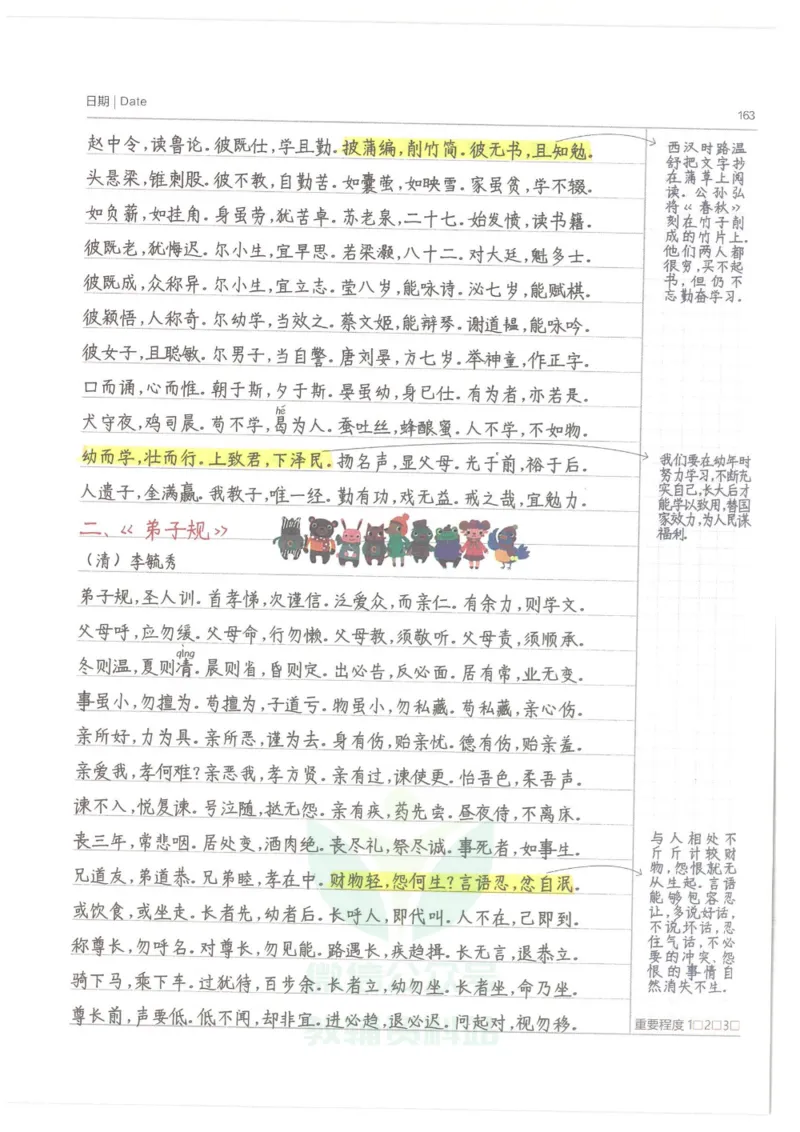 日期 | Date
163
赵中令,读鲁论。彼既仕,学且勤。披蒲编,削竹简。彼无书,且知勉。
头悬梁,锥刺股。彼不教,自勤苦。如囊萤,如映雪。家虽贫,学不辍。
如负薪,如挂角。身虽劳,犹苦卓。苏老泉,二十七。始发愤,读书籍。
彼既老,犹悔迟。尔小生,宜早思。若梁灏,八十二。对大廷,魁多士。
彼既成,众称异。尔小生,宜立志。莹八岁,能咏诗。泌七岁,能赋棋。
彼颖悟,人称奇。尔幼学,当效之。蔡文姬,能辩琴。谢道韫,能咏吟。
彼女子,且聪敏。尔男子,当自警。唐刘晏,方七岁。举神童,作正字。
口而诵,心而惟。朝于斯,夕于斯。晏虽幼,身已仕。有为者,亦若是。
hé
犬守夜,鸡司晨。苟不学,曷为人。蚕吐丝,蜂酿蜜。人不学,不如物。
幼而学,壮而行。上致君,下泽民。扬名声,显父母。光于前,裕于后。
人遗子,金满赢。我教子,唯一经。勤有功,戏无益。戒之哉,宜勉力。
二、《弟子规》
(清)李毓秀
弟子规,圣人训。首孝悌,次谨信。泛爱众,而亲仁。有余力,则学文。
父母呼,应勿缓。父母命,行勿懒。父母教,须敬听。父母责,须顺承。
qìng
冬则温,夏则凊。晨则省,昏则定。出必告,反必面。居有常,业无变。
事虽小,勿擅为。苟擅为,子道亏。物虽小,勿私藏。苟私藏,亲心伤。
亲所好,力为具。亲所恶,谨为去。身有伤,贻亲忧。德有伤,贻亲羞。
亲爱我,孝何难?亲恶我,孝方贤。亲有过,谏使更。怡吾色,柔吾声。
谏不入,悦复谏。号泣随,挞无怨。亲有疾,药先尝。昼夜侍,不离床。
丧三年,常悲咽。居处变,酒肉绝。丧尽礼,祭尽诚。事死者,如事生。
兄道友,弟道恭。兄弟睦,孝在中。财物轻,怨何生?言语忍,忿自泯。
或饮食,或坐走。长者先,幼者后。长呼人,即代叫。人不在,己即到。
称尊长,勿呼名。对尊长,勿见能。路遇长,疾趋揖。长无言,退恭立。
骑下马,乘下车。过犹待,百步余。长者立,幼勿坐。长者坐,命乃坐。
尊长前,声要低。低不闻,却非宜。进必趋,退必迟。问起对,视勿移。
西汉时路温
舒把文字抄
在蒲草上阅
读。公孙弘
将《春秋》
刻在竹子削
成的竹片上。
他们两人都
很穷,买不起
书,但仍不
忘勤奋学习。
我们要在幼年时
努力学习,不断充
实自己,长大后才
能学以致用,替国
家效力,为人民谋
福利。
与人相处不
斤斤计较财
物,怨恨就无
从生起。言语
能够包容忍
让,多说好话,
不说坏话,忍
住气话,不必
要的冲突、怨
恨的事情自
然消失不生。
重要程度 1□2□3□
微信公众号
教辅资料站